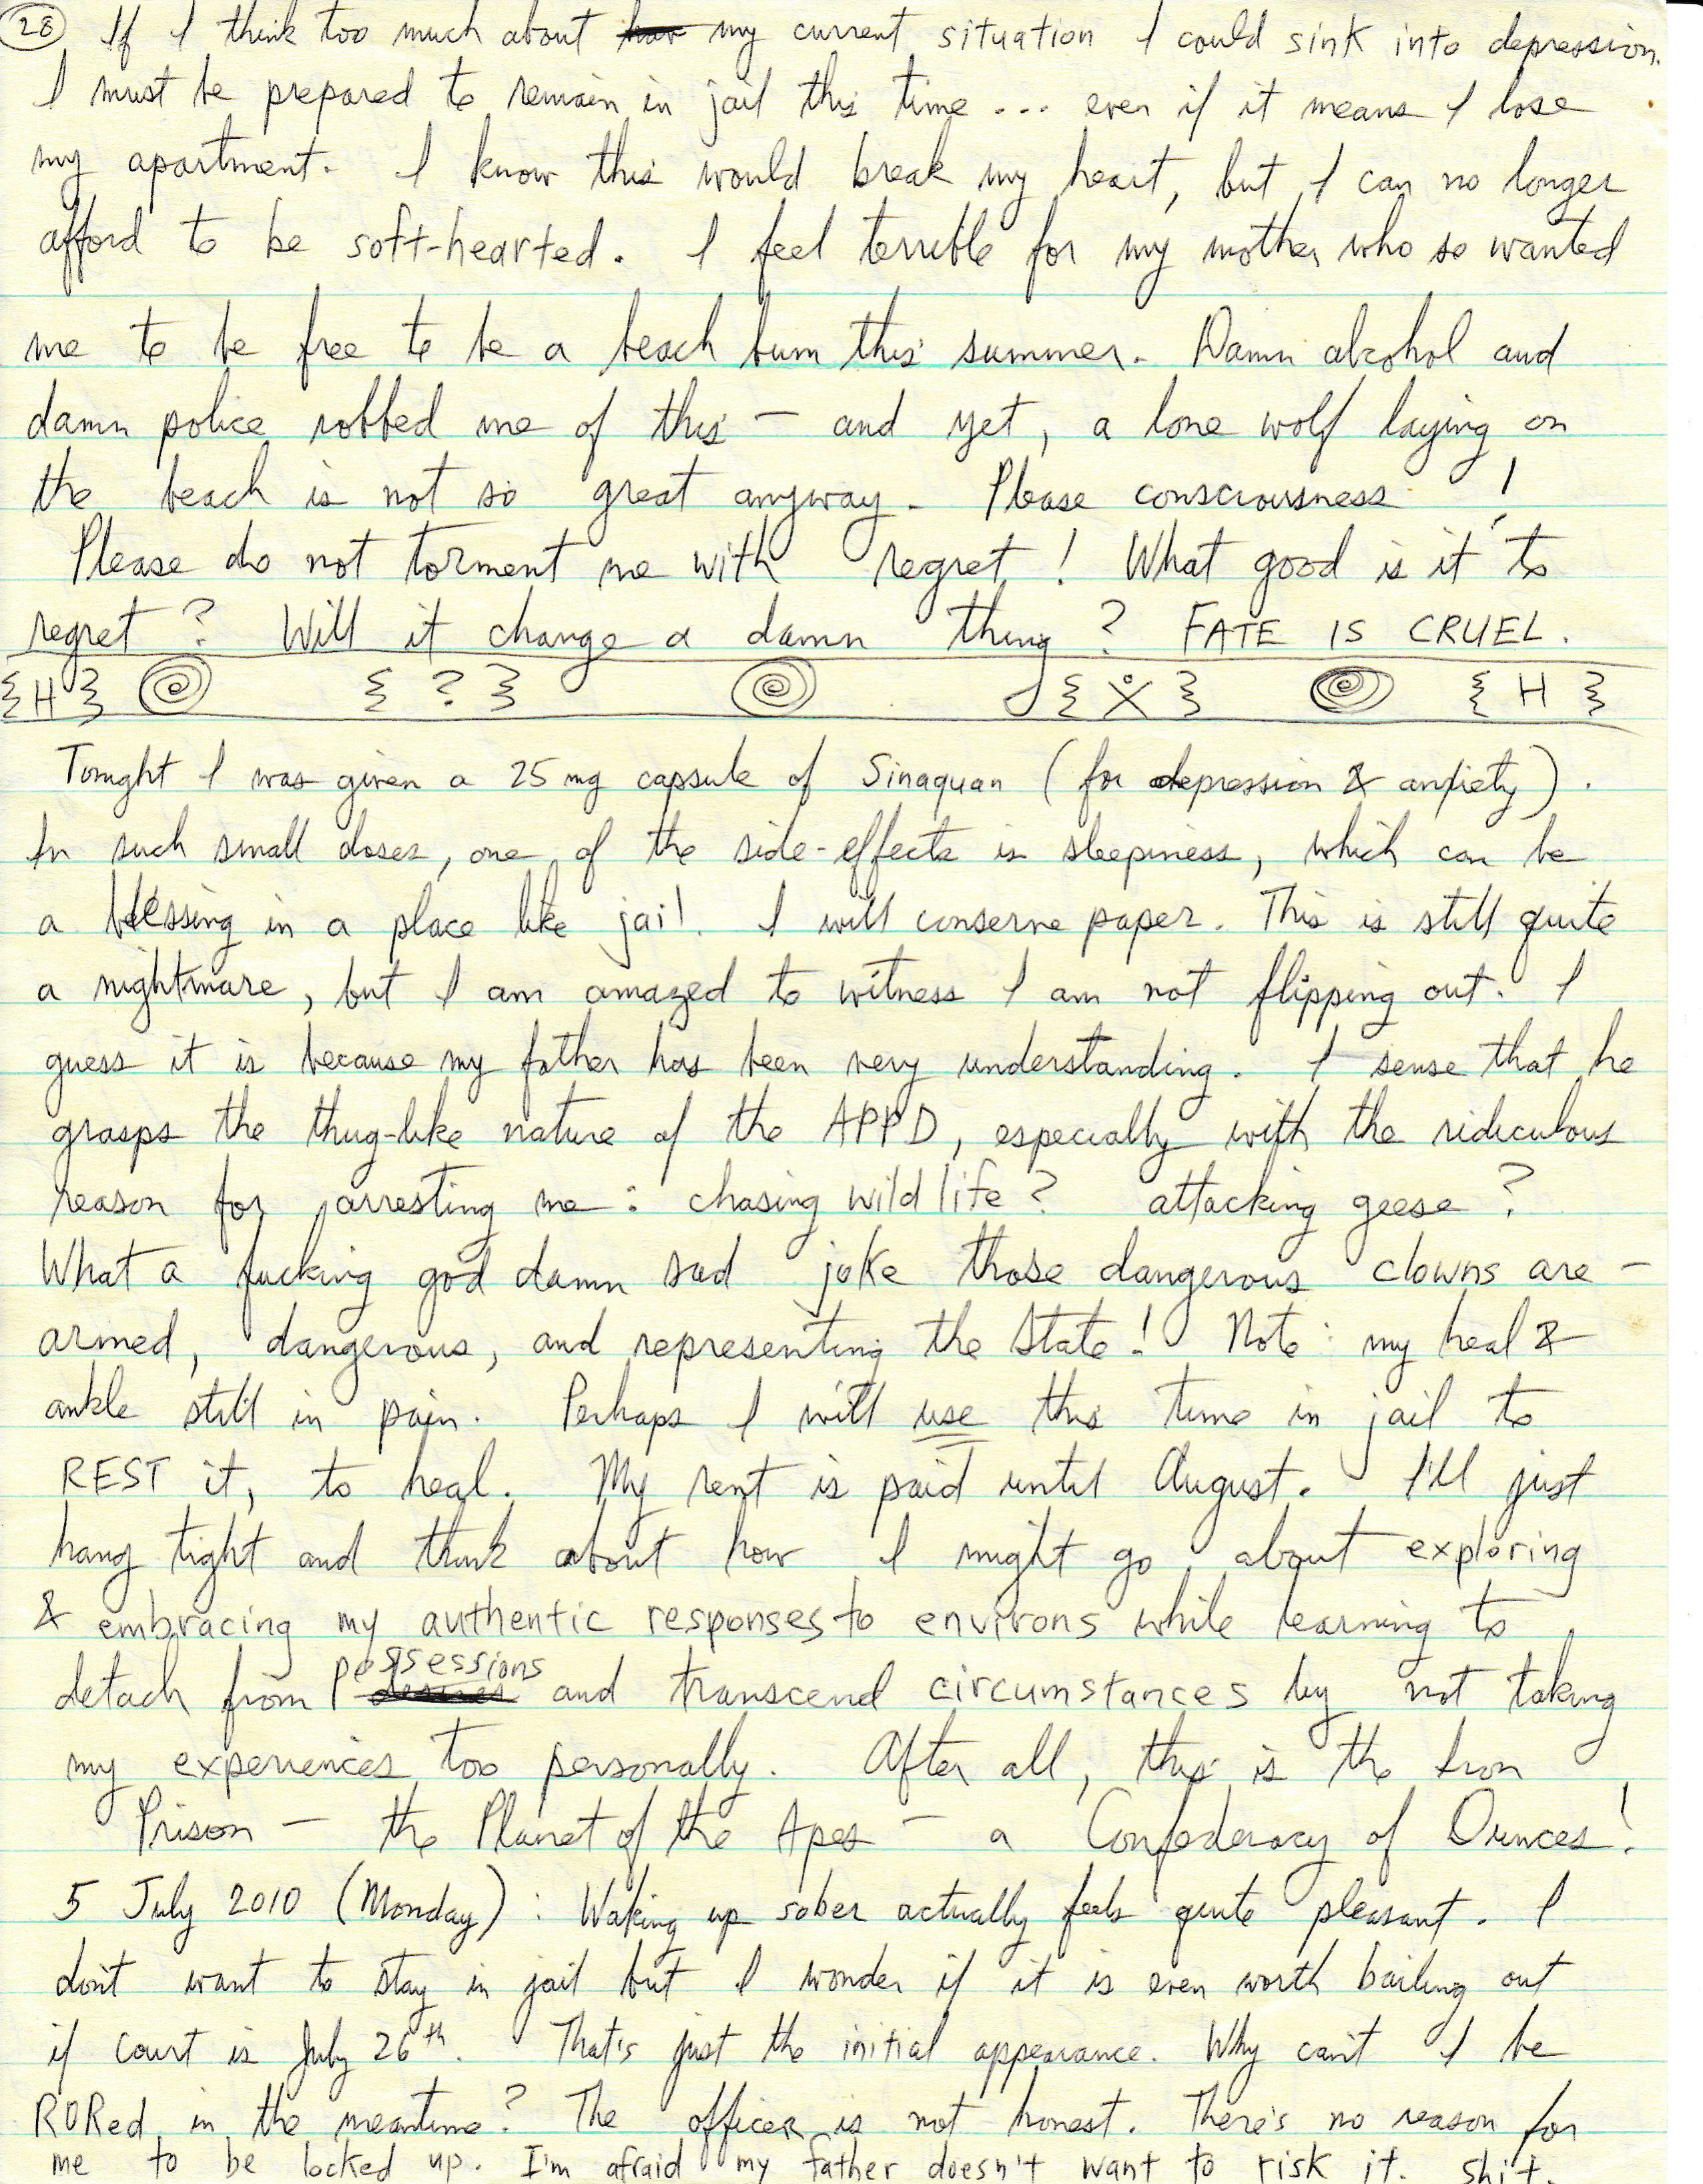 28 If I think too much about my current situation I could sink into depression.
I must be prepared to remain in jail this time ... even if it means I lose
my apartment. I know this would break my heart, but I can no longer
afford to be soft-hearted. I feel terrible for my mother who so wanted
me to be free to be a beach bum this summer. Damn alcohol and
damn police robbed me of this — and yet, a lone wolf laying on
the beach is not so great anyway. Please consciousness!
Please do not torment me with regret! What good is it to
regret? Will it change a damn thing? FATE IS CRUEL.
{H} { ? } { X } { H }
Tonight I was given a 25 mg capsule of Sinaquan (for depression & anxiety).
In such small doses, one of the side-effects is sleepiness, which can be
a blessing in a place like jail. I will conserve paper. This is still quite
a nightmare, but I am amazed to witness I am not flipping out. I
guess it is because my father has been very understanding. I sense that he
grasps the thug-like nature of the APPD, especially with the ridiculous
reason for arresting me: chasing wildlife? attacking geese?
What a fucking god damn sad joke those dangerous clowns are —
armed, dangerous, and representing the State! Note: my heal &
ankle still in pain. Perhaps I will use this time in jail to
REST it, to heal. My rent is paid until August. I'll just
hang tight and think about how I might go about exploring
& embracing my authentic responses to environs while learning to
detach from possessions and transcend circumstances by not taking
my experiences too personally. After all, this is the Iron
Prison — the Planet of the Apes — a Confederacy of Dunces!
5 July 2010 (Monday): Waking up sober actually feels quite pleasant. I
don't want to stay in jail but I wonder if it is even worth bailing out
if court is July 26th. That's just the initial appearance. Why can't I be
RORed in the meantime? The officer is not honest. There's no reason for
me to be locked up. I'm afraid my father doesn't want to risk it. Shit.